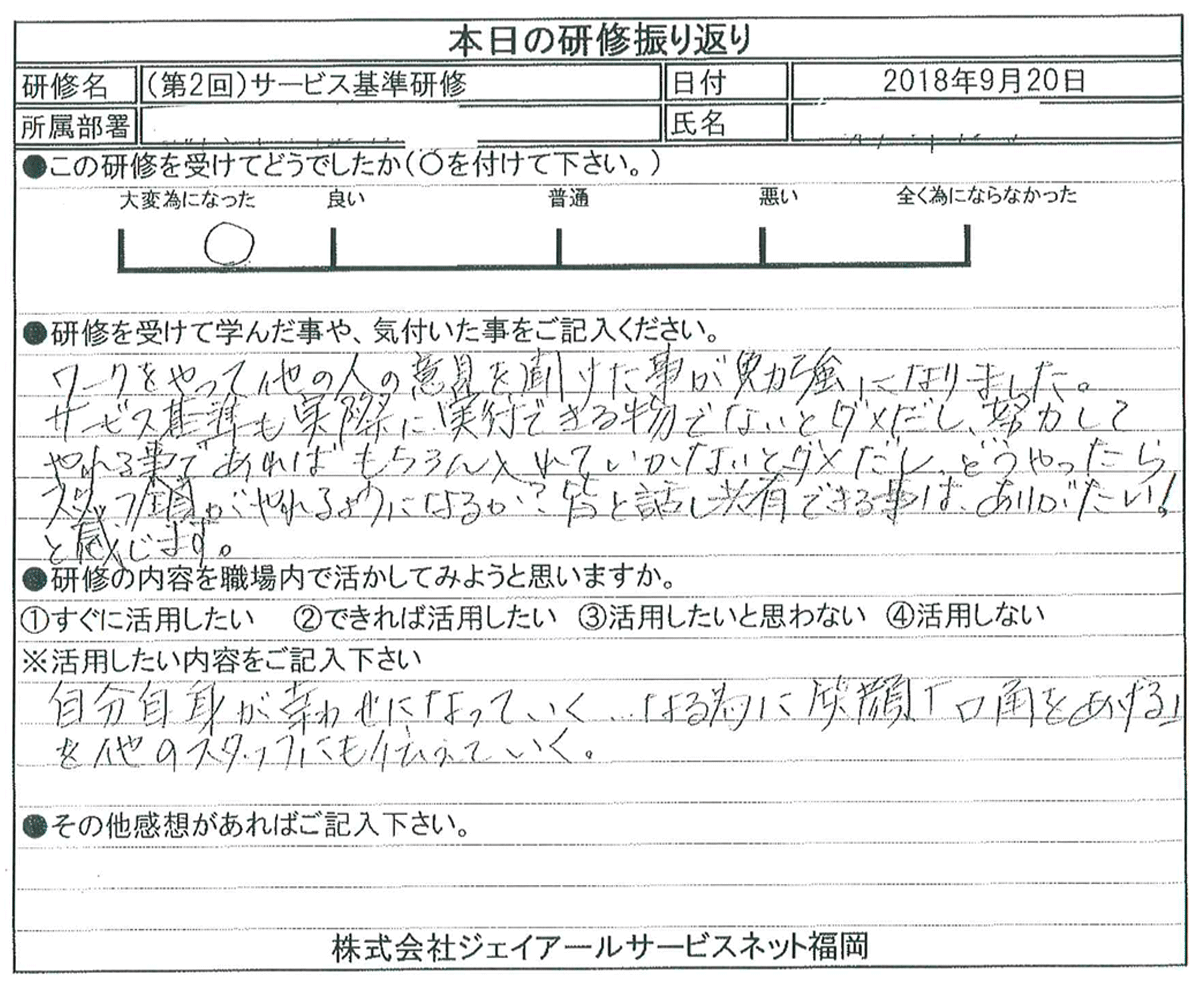 本日の研修振り返り
研修名 (第2回)サービス基準研修 日付 2018年9月20日
所属部署 氏名
●この研修を受けてどうでしたか(〇を付けて下さい。)
大変為になった 良い 普通 悪い 全く為にならなかった
●研修を受けて学んだ事や、気付いた事をご記入ください。
ワークをやって他の人の意見を聞けた事が勉強になりました。
サービス基準も実際に実行できる物でないとダメだし、努力して
やれる事であればもちろん入れていかないとダメだし、どうやったら
スタッフ全員がやれるようになるか?皆と話し共有できる事は、ありがたい!
と感じます。
●研修の内容を職場内で活かしてみようと思いますか。
①すぐに活用したい ②できれば活用したい ③活用したいと思わない ④活用しない
※活用したい内容をご記入下さい
自分自身が幸わせになっていく…なる為に笑顔「口角をあげる」
を他のスタッフにも伝えていく。
●その他感想があればご記入下さい。
株式会社ジェイアールサービスネット福岡